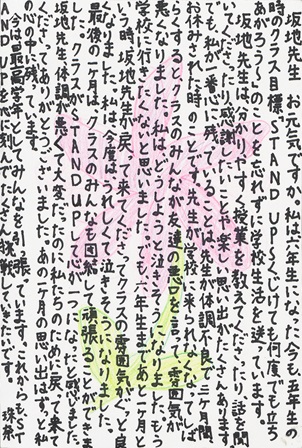 坂地先生、お元気ですか。私は六年生になった今も、五年生の
時のクラス目標、STAND UP~くじけても何度でも立ち
あがろう~のことを忘れずに学校生活を送っています。
坂地先生は、分かりやすく授業を教えてくださったり、話を聞
いてくださったり感謝したいことや楽しい思い出がたくさんあります。
でも、私が一番心に残っていることは先生が体調不良で二ヶ月間
お休みされた時のことです。先生が学校へ来られなくなってしば
らくするとクラスのみんなが友達の悪口を言って雰囲気が
悪くなりました。私はどうしようと泣きそうになりました。もう
学校に行きたくないと思いました。でも六年生まであと一ヶ月と
いう時、坂地先生が戻って来てくださってクラスの雰囲気がぐっと良
くなりました。私は、今度はうれしくて泣きそうになりました。
最後の一ヶ月は、クラスのみんなも団結して頑張ることができま
した。クラスがSTAND UPし心が一つになったと感じました。
坂地先生、体調が悪くて大変だったのに私たちのために戻って来て
くださってありがとうございました。あの一ヶ月の思い出はずっと私
の心の中に残っています。
今は最高学年としてみんなを引っ張っています。これからもST
AND UPを心に刻んでたくさん挑戦していきたいです。